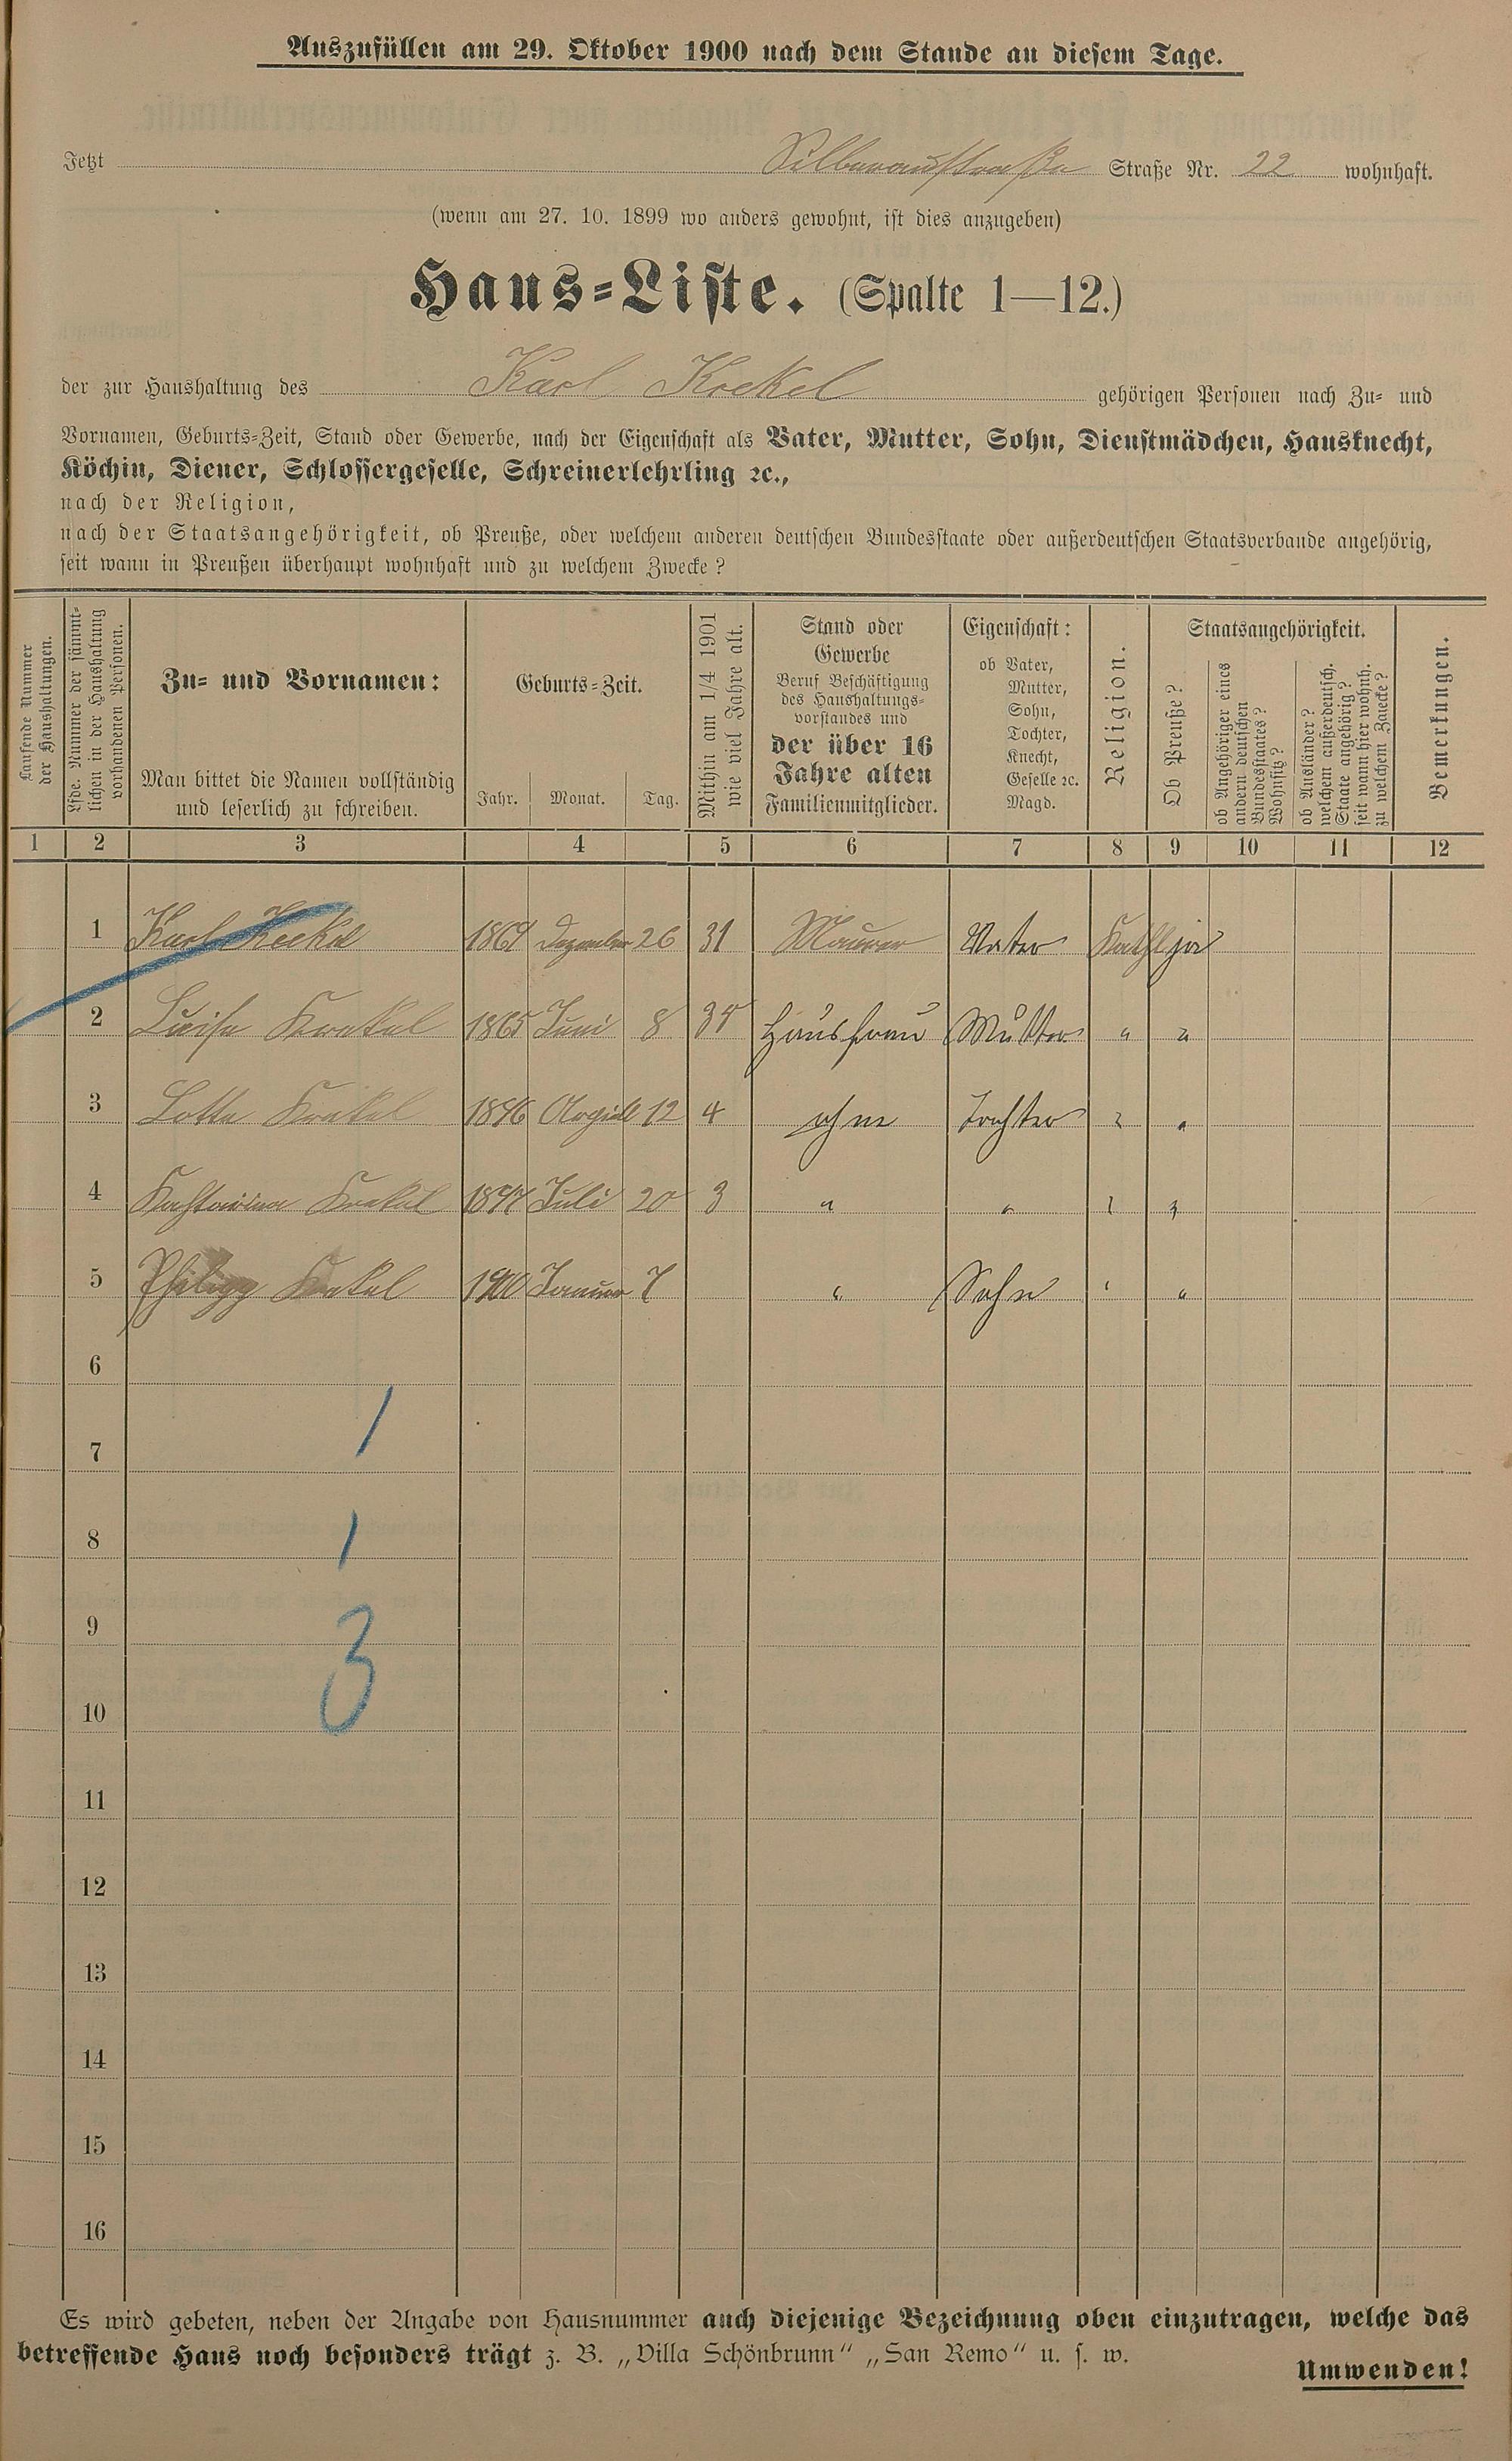 Auszufüllen am 29. Oktober 1900 nach dem Stande an diesem Tage.
Jetzt Silberaustraße Straße Nr. 22 wohnhaft.
(wenn am 27. 10. 1899 wo anders gewohnt, ist dies anzugeben)
Haus-Liste. (Spalte 1—12.)
der zur Haushaltung des Karl Krekel gehörigen Personen nach Zu- und
Vornamen, Geburts-Zeit, Stand oder Gewerbe, nach der Eigenschaft als Vater, Mutter, Sohn, Dienstmädchen, Hausknecht,
Köchin, Diener, Schlossergeselle, Schreinerlehrling ꝛc.,
nach der Religion,
nach der Staatsangehörigkeit, ob Preuße, oder welchem anderen deutschen Bundesstaate oder außerdeutschen Staatsverbande angehörig,
seit wann in Preußen überhaupt wohnhaft und zu welchem Zwecke?
Laufende Nummer
der Haushaltungen.
Lfde. Nummer der sämmt-
lichen in der Haushaltung
vorhandenen Personen.
Zu- und Vornamen:
Man bittet die Namen vollständig
und leserlich zu schreiben.
Geburts-Zeit.
Jahr. Monat. Tag.
Mithin am 1/4 1901
wie viel Jahre alt.
Stand oder
Gewerbe
Beruf Beschäftigung
des Haushaltungs-
vorstandes und
der über 16
Jahre alten
Familienmitglieder.
Eigenschaft:
ob Vater,
Mutter,
Sohn,
Tochter,
Knecht,
Geselle ꝛc.
Magd.
Religion.
Staatsangehörigkeit.
Ob Preuße?
ob Angehöriger eines
andern deutschen
Bundesstaates?
Wohnsitz?
ob Ausländer?
welchem außerdeutsch.
Staate angehörig?
seit wann hier wohnh.
zu welchem Zwecke?
Bemerkungen.
1 2 3 4 5 6 7 8 9 10 11 12
1 Karl Krekel 1869 Dezember 26 31 Maurer Vater Kathl ja
2 Luise Krekel 1865 Juni 8 35 Hausfrau Mutter " "
3 Lotte Krekel 1896 April 12 4 ohne Tochter " "
4 Katharina Krekel 1897 Juli 20 3 " " " "
5 Philipp Krekel 1900 Januar 7 " Sohn " "
6
7 1
8 1
9 3
10
11
12
13
14
15
16
Es wird gebeten, neben der Angabe von Hausnummer auch diejenige Bezeichnung oben einzutragen, welche das
betreffende Haus noch besonders trägt z. B. „Villa Schönbrunn“ „San Remo“ u. s. w.
Umwenden!